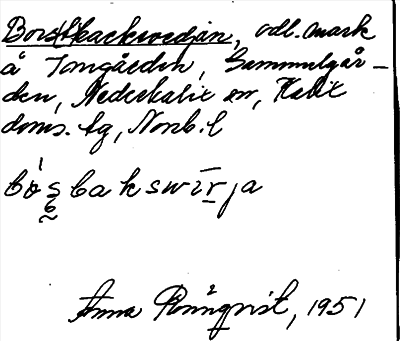 Bors(t)backsvedjan, odl. mark
å Tomgården, Gammelgår-
den, Nederkalix sn, Kalix
doms. tg, Norrb. l
Anna Rönnqvist, 1951